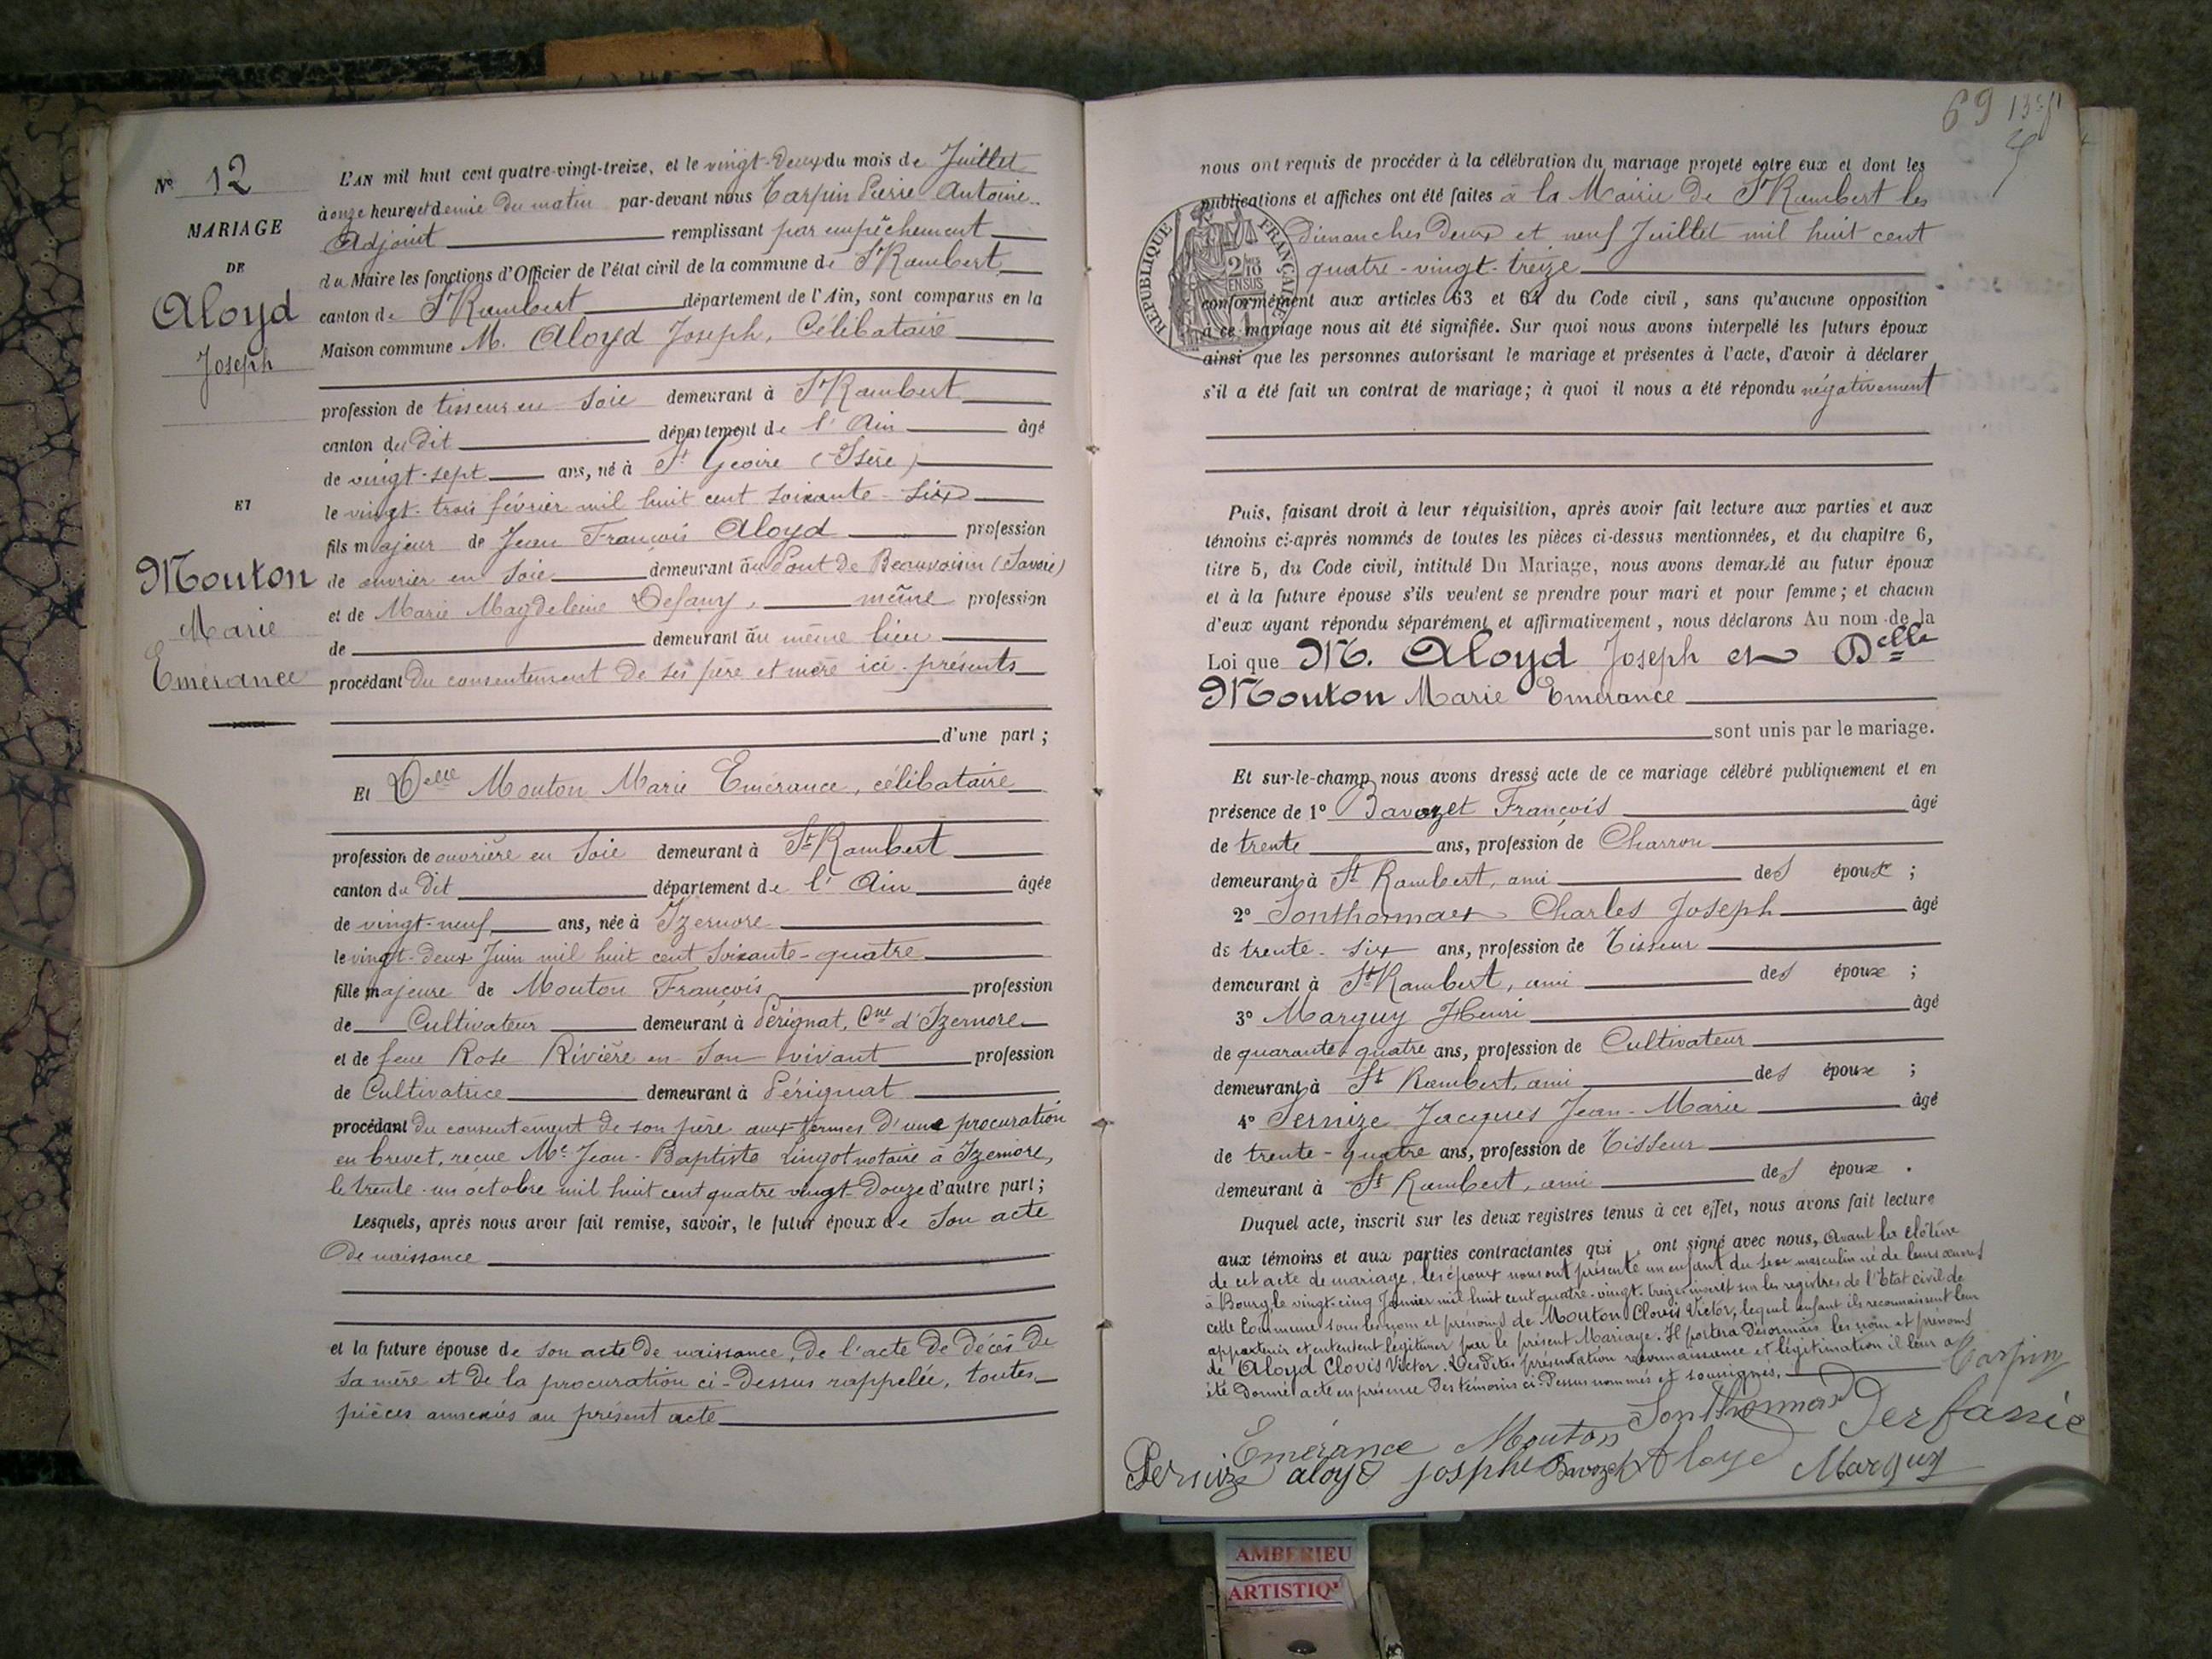 N° 12
MARIAGE
DE
Aloyd
Joseph
ET
Mouton
Marie
Emérance
L'AN mil huit cent quatre-vingt-treize, et le vingt-deux du mois de Juillet
à onze heures et demie du matin par-devant nous Tarpin Pierre Antoine
Adjoint remplissant par empêchement
du Maire les fonctions d'Officier de l'état civil de la commune de St Rambert
canton de St Rambert département de l'Ain, sont comparus en la
Maison commune M. Aloyd Joseph, Célibataire
profession de tisseur en soie demeurant à St Rambert
canton du dit département de l'Ain âgé
de vingt-sept ans, né à St Geoire (Isère)
le vingt-trois février mil huit cent soixante-six
fils majeur de Jean François Aloyd profession
de ouvrier en soie demeurant au Pont de Beauvoisin (Savoie)
et de Marie Magdeleine même profession
de demeurant au même lieu
procédant du consentement de ses père et mère ici présents
d'une part ;
Et Delle Mouton Marie Emérance, célibataire
profession de ouvrière en soie demeurant à St Rambert
canton du dit département de l'Ain âgée
de vingt-neuf ans, née à Izernore
le vingt-deux Juin mil huit cent soixante-quatre
fille majeure de Mouton François profession
de Cultivateur demeurant à Pérignat, Cne d'Izernore
et de feue Rose Rivière en son vivant profession
de Cultivatrice demeurant à Pérignat
procédant du consentement de son père aux termes d'une procuration
en brevet, reçue Me Jean-Baptiste Lingot notaire à Izernore,
le trente-un octobre mil huit cent quatre vingt-douze d'autre part ;
Lesquels, après nous avoir fait remise, savoir, le futur époux de son acte
de naissance
et la future épouse de son acte de naissance, de l'acte de décès de
sa mère et de la procuration ci-dessus rappelée, toutes
pièces annexées au présent acte
69
nous ont requis de procéder à la célébration du mariage projeté entre eux et dont les
publications et affiches ont été faites à la Mairie de St Rambert les
dimanches deux et neuf Juillet mil huit cent
quatre-vingt-treize
RÉPUBLIQUE FRANÇAISE
2/10 EN SUS
conformément aux articles 63 et 64 du Code civil, sans qu'aucune opposition
à ce mariage nous ait été signifiée. Sur quoi nous avons interpellé les futurs époux
ainsi que les personnes autorisant le mariage et présentes à l'acte, d'avoir à déclarer
s'il a été fait un contrat de mariage; à quoi il nous a été répondu négativement
Puis, faisant droit à leur réquisition, après avoir fait lecture aux parties et aux
témoins ci-après nommés de toutes les pièces ci-dessus mentionnées, et du chapitre 6,
titre 5, du Code civil, intitulé Du Mariage, nous avons demandé au futur époux
et à la future épouse s'ils veulent se prendre pour mari et pour femme ; et chacun
d'eux ayant répondu séparément et affirmativement, nous déclarons Au nom de la
Loi que M. Aloyd Joseph et Delle
Mouton Marie Emérance
sont unis par le mariage.
Et sur-le-champ nous avons dressé acte de ce mariage célébré publiquement et en
présence de 1° Bavozet François âgé
de trente ans, profession de Charron
demeurant à St Rambert, ami des époux ;
2° Sonthonnax Charles Joseph âgé
de trente-six ans, profession de Tisseur
demeurant à St Rambert, ami des époux ;
3° Marguy Henri âgé
de quarante-quatre ans, profession de Cultivateur
demeurant à St Rambert, ami des époux ;
4° Pernize Jacques Jean-Marie âgé
de trente-quatre ans, profession de Tisseur
demeurant à St Rambert, ami des époux.
Duquel acte, inscrit sur les deux registres tenus à cet effet, nous avons fait lecture
aux témoins et aux parties contractantes qui ont signé avec nous, Avant la clôture
de cet acte de mariage, les époux nous ont présenté un enfant du sexe masculin né de leurs œuvres
à Bourg, le vingt-cinq Janvier mil huit cent quatre-vingt-treize inscrit sur les registres de l'Etat civil de
cette Commune sous les nom et prénoms de Mouton Clovis Victor, lequel enfant ils reconnaissent leur
appartenir et entendent légitimer par le présent Mariage. Il portera désormais les nom et prénoms
de Aloyd Clovis Victor. Desdites présentation reconnaissance et légitimation il leur a
été donné acte en présence des témoins ci-dessus nommés et soussignés.
Tarpin
Sonthonnax
Emérance Mouton
Pernize aloyd josphe Bavozet Aloyd Marguy
AMBERIEU
ARTISTIQ'